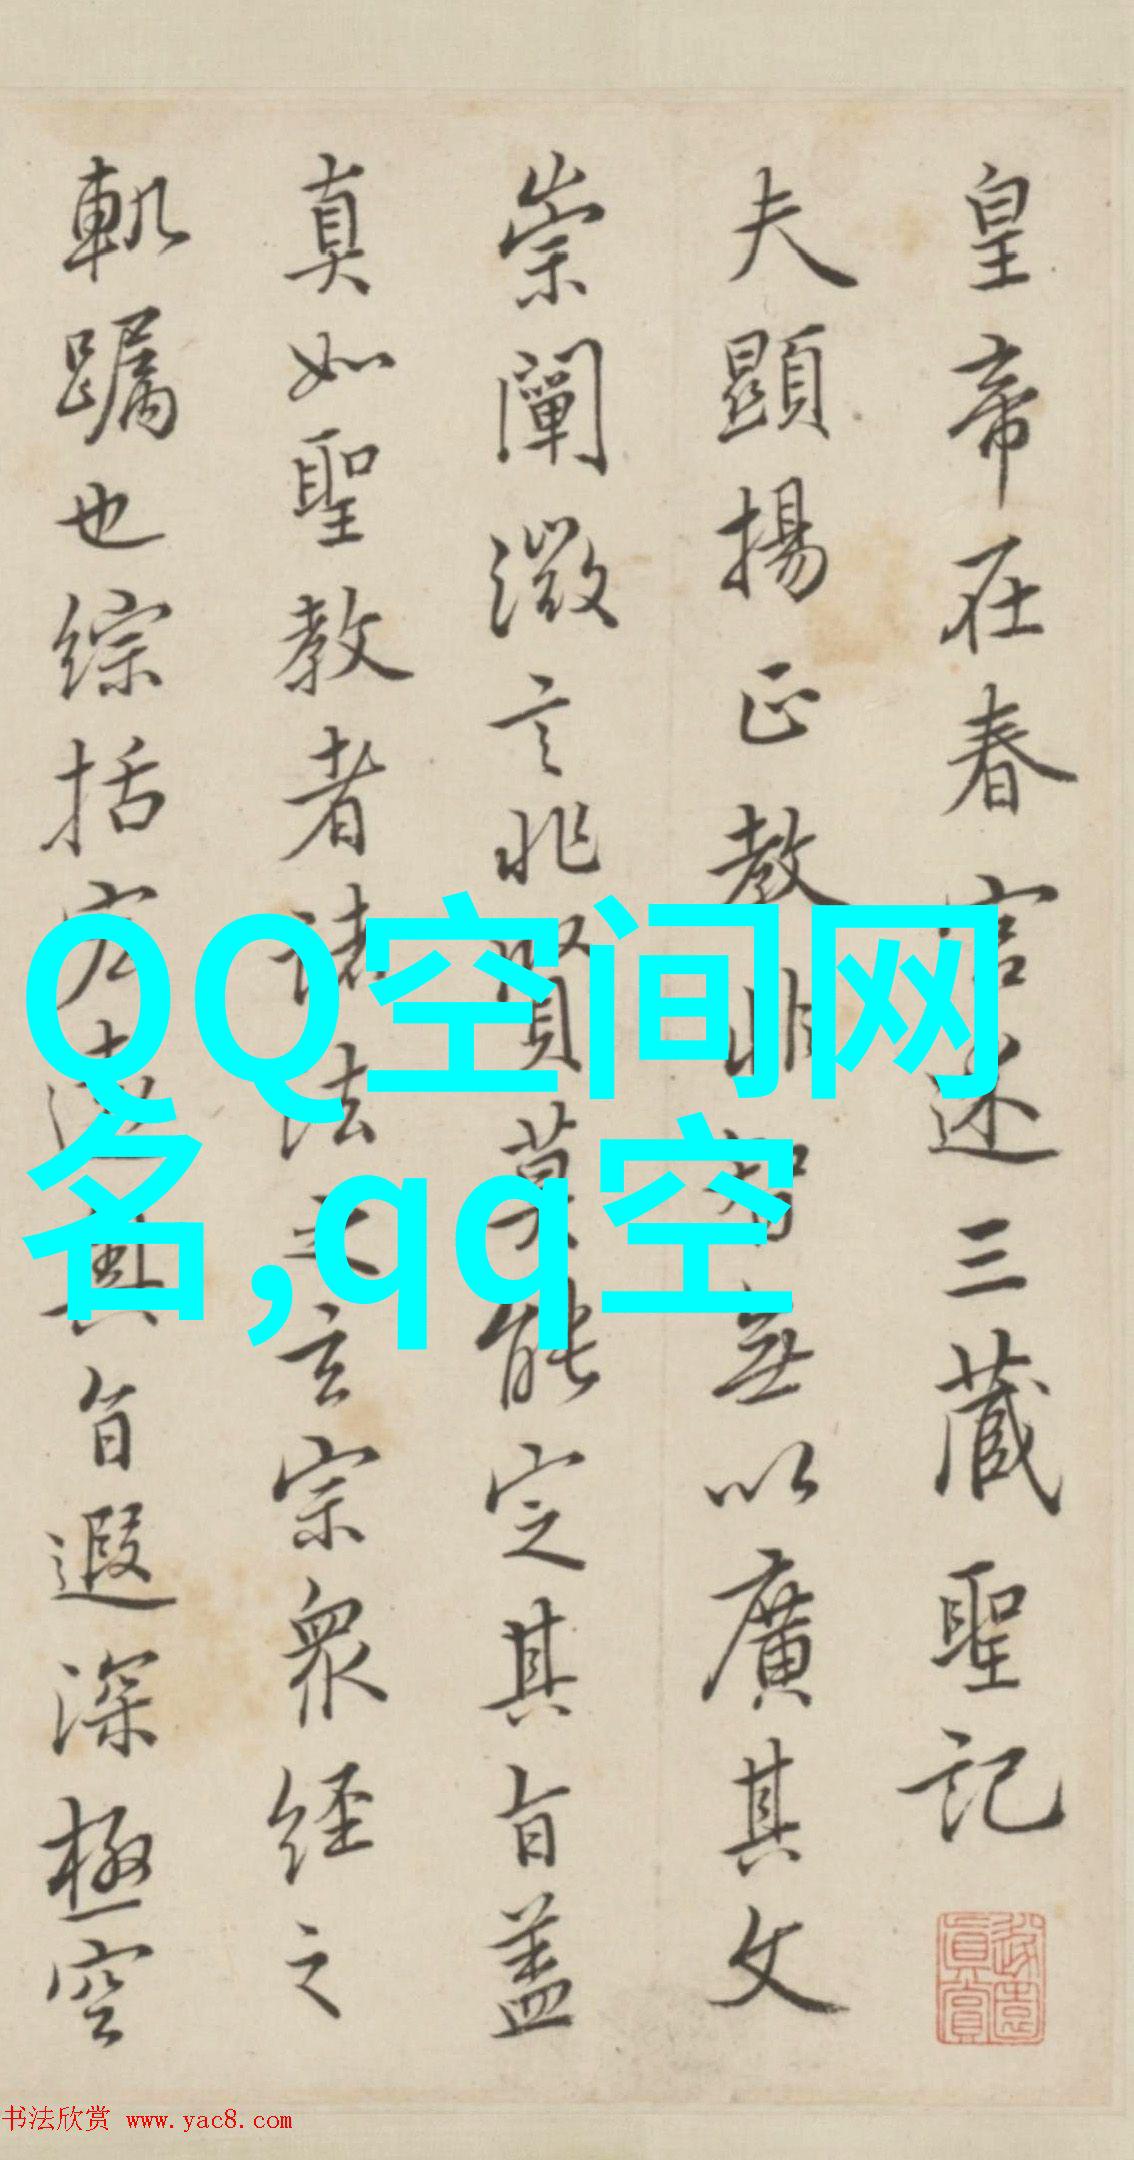 皇帝在春宮述三藏聖記
夫顯揚正教非智無以廣其文
崇闡微言非賢莫能定其旨蓋
真如聖教者諸法之玄宗衆經之
軌躅也綜括宏遠奧旨遐深極空
QQ空间网
名,qq空
书法欣赏 www.yac8.com